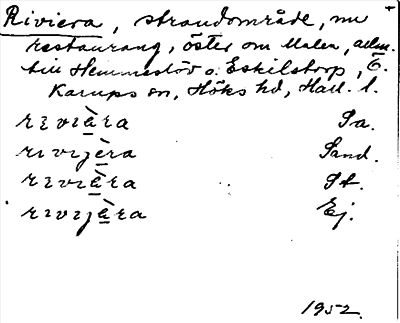 Riviera, strandområde, nu
restaurang, öster om Malen, allm.
till Hemmeslöv o. Eskilstorp, Ö.
Karups sn, Höks hd, Hall. l.
rɩviὲra Pa.
rɩvijὲra Sand.
rɩviὲra St.
rɩvijὲra Ej.
1952.